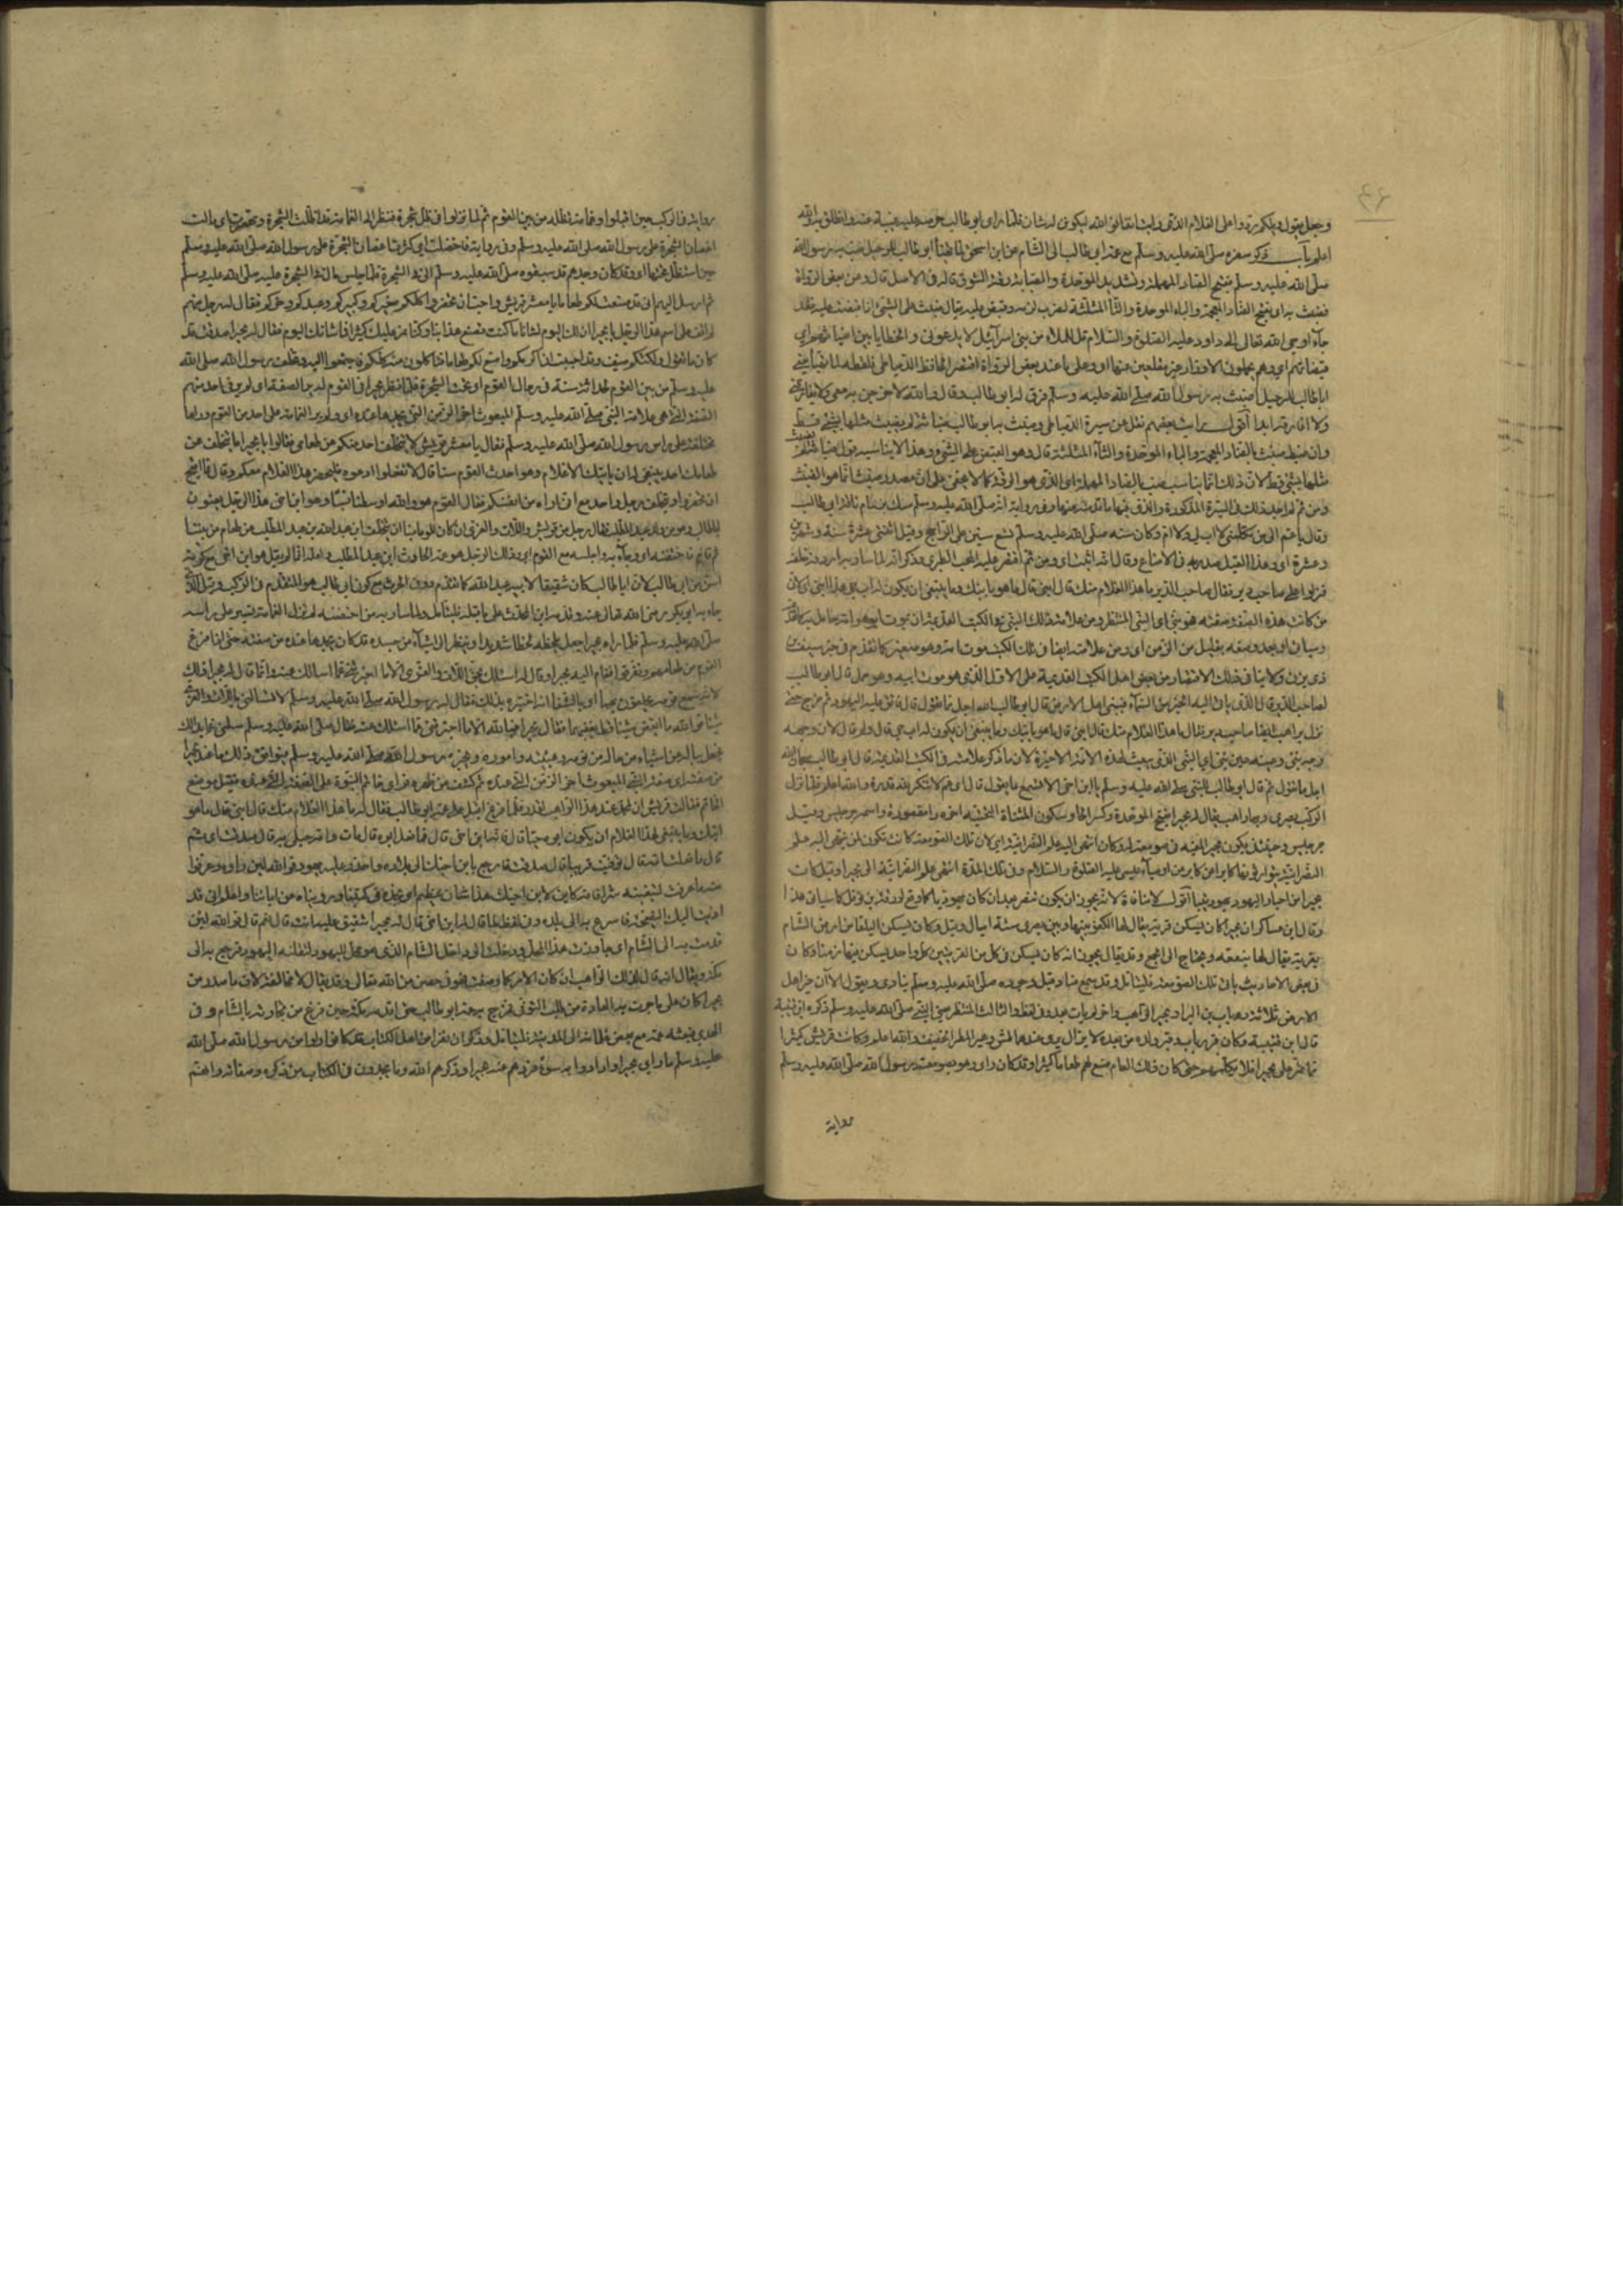 ٤٦
وجعل يقول ويلكم ردوا على الغلام الذى رايت انفا فوالله ليكونن له شان فلما راى ابو طالب حرصه عليه غيبه عنه وانطلق به والله
اعلم باب ذكر سفره صلى الله عليه وسلم مع عمه ابى طالب الى الشام عن ابن اسحق لما تهيأ ابو طالب للرحيل صب به رسول الله
صلى الله عليه وسلم بفتح الصاد المهملة وتشديد الموحدة والصبابة رقة الشوق قاله فى الاصل قال ومن بعض الرواة
فضبث به اى بفتح الضاد المعجمة والباء الموحدة والثا المثلثة كضرب لزمه وقبض عليه يقال ضبثت على الشئ اذا قبضت عليه فقد
جاء اوحى الله تعالى الى داود عليه الصلوة والسلام قل للملاء من بنى اسرآئيل لا يدعونى والخطايا بين اضباثهم اى
قبضاتهم اى وهم يحملون الاوزار غير مقلعين عنها اى وعلى ما عند بعض الرواة اقتصر الحافظ الدمياطى فلفظه لما تهيأ يعنى
ابا طالب للرحيل اضبث به رسول الله صلى الله عليه وسلم فرق له ابو طالب وقال والله لاخرجن به معى ولا يفارقنى
ولا افارقه ابدا اقول رايت بعضهم نقل عن سيرة الدمياطى وضبث به ابو طالب ضباثة لم يضبث مثلها لشئ قط
وان ضبط ضبث بالضاد المعجمة والباء الموحدة والثآء المثلثة قال وهو القبض على الشئ وهذا لا يناسب قوله ضباثة لم يضبث
مثلها لشئ قط لان ذلك انما يناسب صب بالصاد المهملة اى الذى هو الرقة كما لا يخفى على ان مصدر ضبث انما هو الضبث
ومن ثم لم اجد ذلك فى السيرة المذكورة والذى فيها ما قدمته عنها وفى رواية انه صلى الله عليه وسلم مسك بزمام ناقة ابى طالب
وقال يا عم الى من تكلنى لا اب لى ولا ام وكان سنه صلى الله عليه وسلم تسع سنين على الراجح وقيل اثنتى عشرة سنة وشهرين
وعشرة اى وهذا القيل صدر به فى الامتاع وقال انه اثبت اى ومن ثم اقتصر عليه المحب الطبرى وذكر انه لما سار به اردفه خلفه
فنزلوا على صاحب دير فقال صاحب الدير ما هذا الغلام منك قال ابنى قال ما هو بابنك وما ينبغى ان يكون له اب حى هذا نبى اى لان
من كانت هذه الصفة صفته فهو نبى اى النبى المنتظر ومن علامة ذلك النبى فى الكتب القديمة ان يموت ابوه وامه حامل به كما تقدم
وسياتى او بعد وضعه بقليل من الزمن اى ومن علامته ايضا فى تلك الكتب موت امه وهو صغير كما تقدم فى خبر سيف بن
ذى يزن ولا ينافى ذلك الاقتصار من بعض اهل الكتب القديمة على الاول الذى هو موت ابيه وهو حمل قال ابو طالب
لصاحب الدير وما النبى قال الذى يأتى اليه الخبر من السمآء فينبئ اهل الارض قال ابو طالب الله اجل مما تقول قال فاتق عليه اليهود ثم خرج حتى
نزل براهب ايضا صاحب دير فقال ما هذا الغلام منك قال ابنى قال ما هو بابنك وما ينبغى ان يكون له اب حى قال ولم قال لان وجهه
وجه نبى وعينه عين نبى اى النبى الذى يبعث لهذه الامة الاخيرة لان ما ذكر علامته فى الكتب القديمة قال ابو طالب سبحان الله
اجل ما تقول ثم قال ابو طالب للنبى صلى الله عليه وسلم يا ابن اخى الا تسمع ما يقول قال اى عم لا تنكر لله قدرة والله اعلم فلما نزل
الركب بصرى وبها راهب يقال له بحيرا بفتح الموحدة وكسر الحا وسكون المثناة التحتية اخره را مقصورة واسمه جرجيس وقيل
سرجيس وحينئذ يكون بحيرا لقبه فى صومعة له وكان انتهى اليه علم النصرانية اى لان تلك الصومعة كانت تكون لمن ينتهى اليه علم
النصرانية يتوارثونها كابرا عن كابر من اوصيآء عيسى عليه الصلوة والسلام وفى تلك المدة انتهى علم النصرانية الى بحيرا وقيل كان
بحيرا من احبار اليهود يهود تيما اقول لا منافاة لانه يجوز ان يكون تنصر بعد ان كان يهوديا كما وقع لورقة بن نوفل كما سياتى هذا
وقال ابن عساكر ان بحيرا كان يسكن قرية يقال لها الكفر بينها وبين بصرى ستة اميال وقيل كان يسكن البلقا من ارض الشام
بقرية يقال لها ميفعه ويحتاج الى الجمع وقد يقال يجوز انه كان يسكن فى كل من القريتين كل واحد يسكن فيها زمنا وكان
فى بعض الاحايين يأتى تلك الصومعة فليتامل وقد سمع مناد قبل وجوده صلى الله عليه وسلم ينادى ويقول الا ان خير اهل
الارض ثلاثة رباب بن البراء وبحيرا الراهب واخر لم يات بعد وفى لفظ والثالث المنتظر يعنى النبى صلى الله عليه وسلم ذكره ابن قتيبة
قال ابن قتيبة وكان قبر رباب وقبر ولده من بعده لا يزال يرى عندهما طش وهو المطر الخفيف والله اعلم وكانت قريش كثيرا
ما تمر على بحيرا فلا يكلمهم حتى كان ذلك العام صنع لهم طعاما كثيرا وقد كان راى وهو بصومعته رسول الله صلى الله عليه وسلم
رواية
رواية فى الركب حين اقبلوا وغمامة تظله من بين القوم ثم لما نزلوا فى ظل شجرة فنظر الى الغمامة قد اظلت الشجرة وتهصرت اى مالت
اغصان الشجرة على رسول الله صلى الله عليه وسلم وفى رواية فاخضلت اى كثرت اغصان الشجرة على رسول الله صلى الله عليه وسلم
حين استظل تحتها اى وقد كان وجدهم قد سبقوه صلى الله عليه وسلم الى فئ الشجرة فلما جلس مال فئ الشجرة عليه صلى الله عليه وسلم
ثم ارسل اليهم انى قد صنعت لكم طعاما يا معشر قريش واحب ان تحضروا كلكم صغيركم وكبيركم وعبدكم وحركم فقال له رجل منهم
لم اقف على اسم هذا الرجل يا بحيرا ان لك اليوم لشانا ما كنت تصنع هذا بنا وكنا نمر عليك كثيرا فما شانك اليوم فقال له بحيرا صدقت قد
كان ما تقول ولكنكم ضيف وقد احببت ان اكرمكم واصنع لكم طعاما فتاكلون منه كلكم فاجتمعوا اليه وتخلف رسول الله صلى الله
عليه وسلم من بين القوم لحداثة سنه فى رحال القوم اى تحت الشجرة فلما نظر بحيرا فى القوم لم ير الصفة اى لم ير فى احد منهم
الصفة التى هى علامة النبى صلى الله عليه وسلم المبعوث اخر الزمن التى يجدها عنده اى ولم ير الغمامة على احد من القوم ورآها
متخلفة على راس رسول الله صلى الله عليه وسلم فقال يا معشر قريش لا يتخلف احد منكم عن طعامى فقالوا يا بحيرا ما تخلف عن
طعامك احد ينبغى له ان ياتيك الا غلام وهو احدث القوم سنا قال لا تفعلوا ادعوه فليحضر هذا الغلام معكم وقال فما اقبح
ان تحضروا ويتخلف رجل واحد مع انى اراه من انفسكم فقال القوم هو والله اوسطنا نسبا وهو ابن اخى هذا الرجل يعنون
ابا طالب وهو من ولد عبد المطلب فقال رجل من قريش واللات والعزى ان كان للوما بنا ان يتخلف ابن عبد الله بن عبد المطلب عن طعام من بيننا
ثم قام اليه فاحتضنه اى وجآء به واجلسه مع القوم اى وذلك الرجل هو عمه الحارث ابن عبد المطلب ولعله انما لم يقل هو ابن اخى مع كونه
اسن من ابى طالب لان ابا طالب كان شقيقا لابيه عبد الله كما تقدم دون الحرث مع كون ابى طالب هو المقدم فى الركب وقيل الذى
جاء به ابو بكر رضى الله تعالى عنه وقدمه ابن المحدث على ما قبله فليتامل ولما سار به من احتضنه لم تزل الغمامة تسير على راسه
صلى الله عليه وسلم فلما راه بحيرا جعل يلحظه لحظا شديدا وينظر الى اشيآء من جسده قد كان يجدها عنده من صفته حتى اذا فرغ
القوم من طعامهم وتفرقوا قام اليه بحيرا وقال له اسئلك بحق اللات والعزى الا ما اخبرتنى عما اسالك عنه وانما قال له بحيرا ذلك
لانه سمع قومه يحلفون بهما اى وفى الشفا انه اختبره بذلك فقال له رسول الله صلى الله عليه وسلم لا تسالنى باللات والعزى
شيا فوالله ما ابغض شيئا قط بغضهما فقال بحيرا فبالله الا ما اخبرتنى عما اسئلك عنه فقال صلى الله عليه وسلم سلنى عما بدا لك
فجعل يساله عن اشياء من حاله من نومه وهيئته واموره ويخبره رسول الله صلى الله عليه وسلم فيوافق ذلك ما عند بحيرا
من صفته اى صفة النبى المبعوث اخر الزمن التى عنده ثم كشف عن ظهره فراى خاتم النبوة على الصفة التى عنده فقبل موضع
الخاتم فقالت قريش ان لمحمد عند هذا الراهب لقدرا فلما فرغ اقبل على عمه ابى طالب فقال له ما هذا الغلام منك قال ابنى قال ما هو
ابنك وما ينبغى لهذا الغلام ان يكون ابوه حيا قال فانه ابن اخى قال فما فعل ابوه قال مات وامه حبلى به قال صدقت اى ثم
قال ما فعلت امه قال توفيت قريبا قال صدقت فارجع بابن اخيك الى بلاده واحذر عليه يهود فوالله لئن راوه وعرفوا
منه ما عرفت لتبغينه شرا فانه كاين لابن اخيك هذا شان عظيم اى نجده فى كتبنا ورويناه عن اباينا واعلم انى قد
اديت اليك النصيحة فاسرع به الى بلده وفى لفظ لما قال له ابن اخى قال له بحيرا اشفيق عليه انت قال نعم قال فوالله لئن
قدمت به الى الشام اى جاوزت هذا المحل ودخلت الى داخل الشام الذى هو محل اليهود لتقتلنه اليهود فرجع به الى
مكة ويقال انه قال لذلك الراهب ان كان الامر كما وصفت فهو فى حصن من الله تعالى وقد يقال لا مخالفة لان ما صدر من
بحيرا كان على ما جرت به العادة من طلب التوقى فخرج به عمه ابو طالب حتى اقدمه مكة حين فرغ من تجارته بالشام وفى
الهدى فبعثه عمه مع بعض غلمانه الى المدينة فليتامل وذكر ان نفرا من اهل الكتاب قد كانوا راوا من رسول الله صلى الله
عليه وسلم ما راى بحيرا وارادوا به سوءا فردهم عنه بحيرا وذكرهم الله وما يجدون فى الكتاب من ذكره وصفاته وانهم